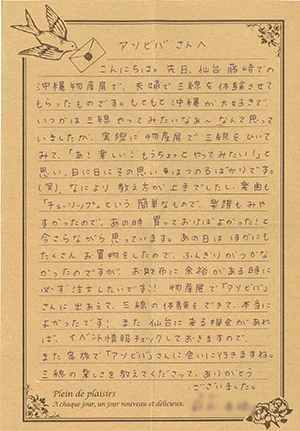 アソビバ さんへ
こんにちは。先日、仙台 藤崎での
沖縄物産展で、夫婦で三線を体験させて
もらったものです。もともと沖縄が大好きで、
いつかは三線 やってみたいなぁ〜なんて思って
いましたが、実際に物産展で三線をひいて
みて、「あ！楽しい！もうちょっと やってみたい！」と
思い、日に日にその思いはつのるばかりです。
(笑)、なにより 教え方が 上手でしたし、楽曲も
"チューリップ"という 簡単なもので、楽譜もみや
すかったので、あの時 買っておけばよかった！と
今さらながら 思っています。あの日は ほかにも
たくさん お買物をしたので、ふんぎりがつかな
かったのですが、お財布に余裕がある時に
必ず注文したいです!! 物産展で「アソビバ」
さんに 出会えて、三線の体験もできて、本当に
よかったです！また 仙台に来る機会があれ
ば、イベント情報チェックしておきますので、
また 家族で「アソビバ」さんに会いに行きますね。
三線の楽しさを教えてくださって、ありがとう
ございました。
Plein de plaisirs
A chaque jour, un jour nouveau et délicieux.